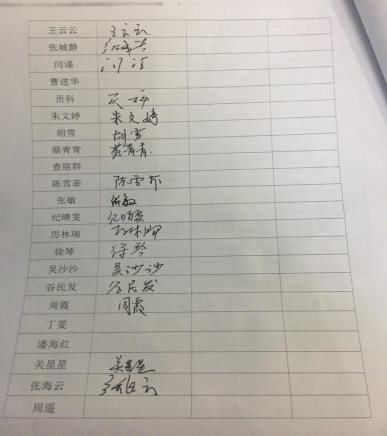 王云云 王云云
张城静 张城静
闫谨 闫谨
曹进华
贡科 贡科
朱文婷 朱文婷
胡雪 胡雪
蔡青青 蔡青青
查丽群
陈雪菲 陈雪菲
张敏 张敏
纪晴雯 纪晴雯
厉林瑞 厉林瑞
徐琴 徐琴
吴沙沙 吴沙沙
谷民发 谷民发
周霞 周霞
丁雯
潘海红
关星星 关星星
张海云 张海云
周遥